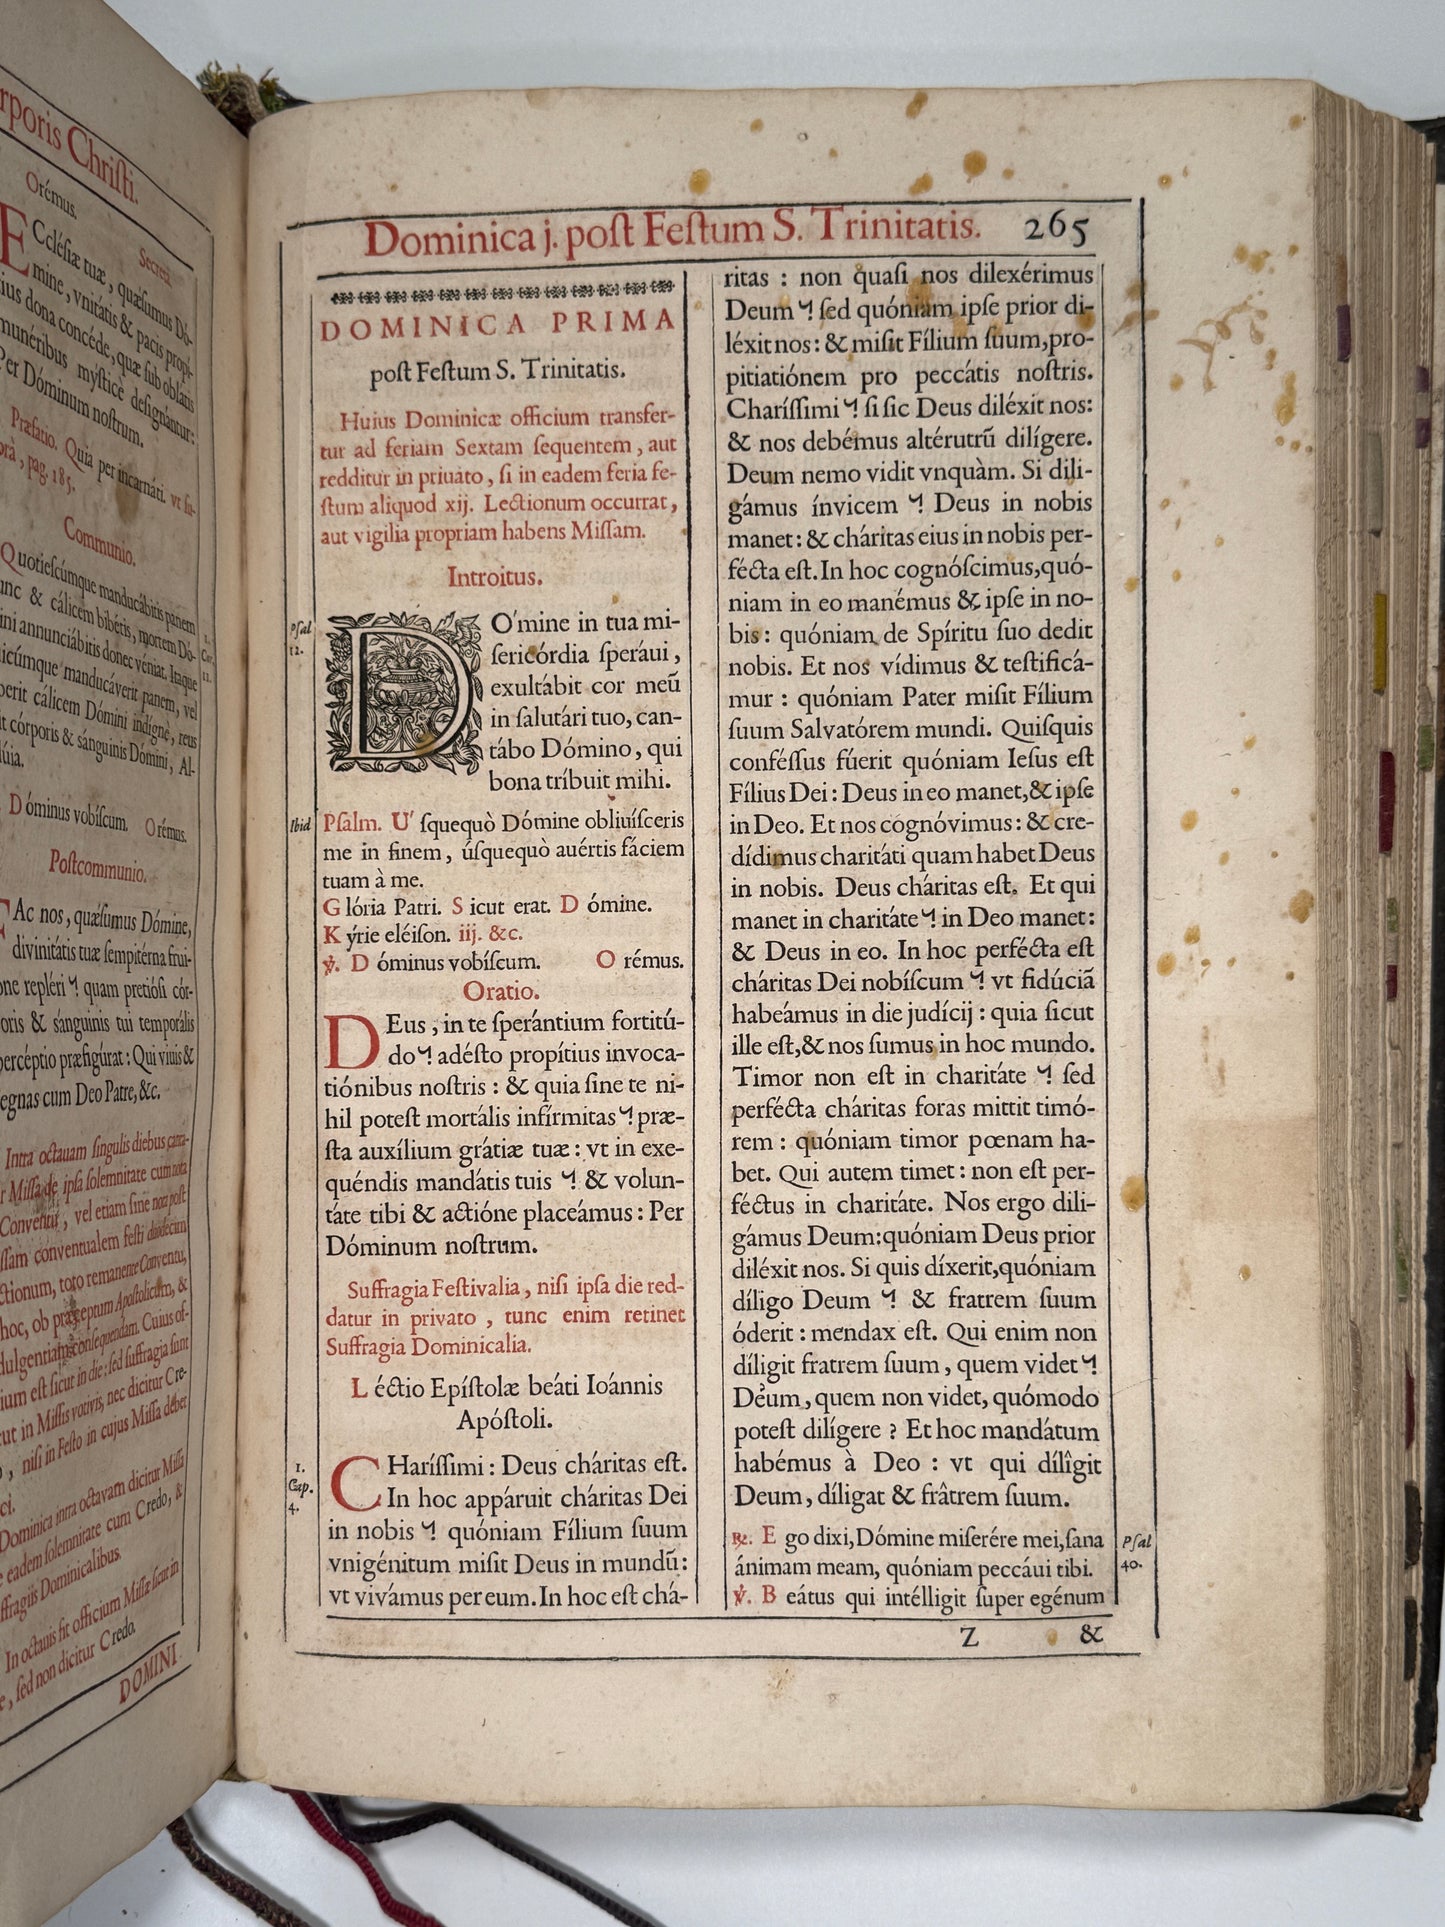 rporis Chriſti.
Orémus.
Secreta
ECcléſiæ tuæ, quæſumus Dó-
mine, vnitátis & pacis propí-
tius dona concéde, quæ ſub oblátis
munéribus myſticè deſignántur:
Per Dóminum noſtrum.
Præfatio. Quia per incarnáti. vt ſu-
prà, pag. 185.
Communio.
Quotieſcúmque manducábitis panem
hunc & cálicem bibétis, mortem Dó-
mini annunciábitis donec véniat. Itaque
quicúmque manducáverit panem, vel
biberit cálicem Dómini indígnè, reus
erit córporis & sánguinis Dómini, Al-
lelúia.
1.
Cor.
11.
Dóminus vobíſcum. Orémus.
Poſtcommunio.
FAc nos, quæſumus Dómine,
divinitátis tuæ ſempitérna frui-
óne repléri ꝗ quam pretióſi cór-
poris & sánguinis tui temporális
percéptio præfigúrat: Qui viuis &
regnas cum Deo Patre, &c.
Intra octauam ſingulis diebus canta-
r Miſſa de ipſa ſolemnitate cum nota
Conventu, vel etiam ſine nota poſt
ſſam conventualem feſti duodecim
ctionum, toto remanente Conventu,
hoc, ob præceptum Apoſtolicum, &
dulgentiam conſequendam. Cuius of-
ium eſt ſicut in die; ſed ſuffragia ſunt
cut in Miſſis votivis, nec dicitur Cre-
, niſi in Feſto in cujus Miſſa debet
ci.
Dominica intra octavam dicitur Miſſa
e eadem ſolemnitate cum Credo, &
ffragiis Dominicalibus.
In octauis fit officium Miſſæ ſicut in
e, ſed non dicitur Credo.
DOMINI
Dominica j. poſt Feſtum S. Trinitatis. 265
DOMINICA PRIMA
poſt Feſtum S. Trinitatis.
Huius Dominicæ officium transfer-
tur ad feriam Sextam ſequentem, aut
redditur in priuato, ſi in eadem feria fe-
ſtum aliquod xij. Lectionum occurrat,
aut vigilia propriam habens Miſſam.
Introitus.
Pſal
12.
DO'mine in tua mi-
ſericórdia ſperáui,
exultábit cor meũ
in ſalutári tuo, can-
tábo Dómino, qui
bona tríbuit mihi.
Ibid
Pſalm. U' ſquequò Dómine obliuíſceris
me in finem, úſquequò auértis fáciem
tuam à me.
Glória Patri. Sicut erat. Dómine.
Kýrie eléiſon. iij. &c.
℣. Dóminus vobíſcum. Orémus.
Oratio.
DEus, in te ſperántium fortitú-
do ꝗ adéſto propítius invoca-
tiónibus noſtris: & quia ſine te ni-
hil poteſt mortális infírmitas ꝗ præ-
ſta auxílium grátiæ tuæ: vt in exe-
quéndis mandátis tuis ꝗ & volun-
táte tibi & actióne placeámus: Per
Dóminum noſtrum.
Suffragia Feſtivalia, niſi ipſa die red-
datur in privato, tunc enim retinet
Suffragia Dominicalia.
Léctio Epíſtolæ beáti Ioánnis
Apóſtoli.
1.
Cap.
4.
CHaríſſimi: Deus cháritas eſt.
In hoc appáruit cháritas Dei
in nobis ꝗ quóniam Fílium ſuum
vnigénitum miſit Deus in mundũ:
vt vivámus per eum. In hoc eſt chá-
ritas: non quaſi nos dilexérimus
Deum ꝗ ſed quóniam ipſe prior di-
léxit nos: & miſit Fílium ſuum, pro-
pitiatiónem pro peccátis noſtris.
Charíſſimi ꝗ ſi ſic Deus diléxit nos:
& nos debémus altérutrũ dilígere.
Deum nemo vidit vnquàm. Si dili-
gámus ínvicem ꝗ Deus in nobis
manet: & cháritas eius in nobis per-
fécta eſt. In hoc cognóſcimus, quó-
niam in eo manémus & ipſe in no-
bis: quóniam de Spíritu ſuo dedit
nobis. Et nos vídimus & teſtificá-
mur: quóniam Pater miſit Fílium
ſuum Salvatórem mundi. Quiſquis
conféſſus fúerit quóniam Ieſus eſt
Fílius Dei: Deus in eo manet, & ipſe
in Deo. Et nos cognóvimus: & cre-
dídimus charitáti quam habet Deus
in nobis. Deus cháritas eſt. Et qui
manet in charitáte ꝗ in Deo manet:
& Deus in eo. In hoc perfécta eſt
cháritas Dei nobíſcum ꝗ vt fidúciã
habeámus in die judícij: quia ſicut
ille eſt, & nos ſumus in hoc mundo.
Timor non eſt in charitáte ꝗ ſed
perfécta cháritas foras mittit timó-
rem: quóniam timor pœnam ha-
bet. Qui autem timet: non eſt per-
féctus in charitáte. Nos ergo dili-
gámus Deum: quóniam Deus prior
diléxit nos. Si quis díxerit, quóniam
díligo Deum ꝗ & fratrem ſuum
óderit: mendax eſt. Qui enim non
díligit fratrem ſuum, quem videt ꝗ
Deum, quem non videt, quómodo
poteſt dilígere? Et hoc mandátum
habémus à Deo: vt qui dílîgit
Deum, díligat & frâtrem ſuum.
℟. Ego dixi, Dómine miſerére mei, ſana
ánimam meam, quóniam peccáui tibi.
℣. Beátus qui intélligit ſuper egénum
Pſal
40.
Z &